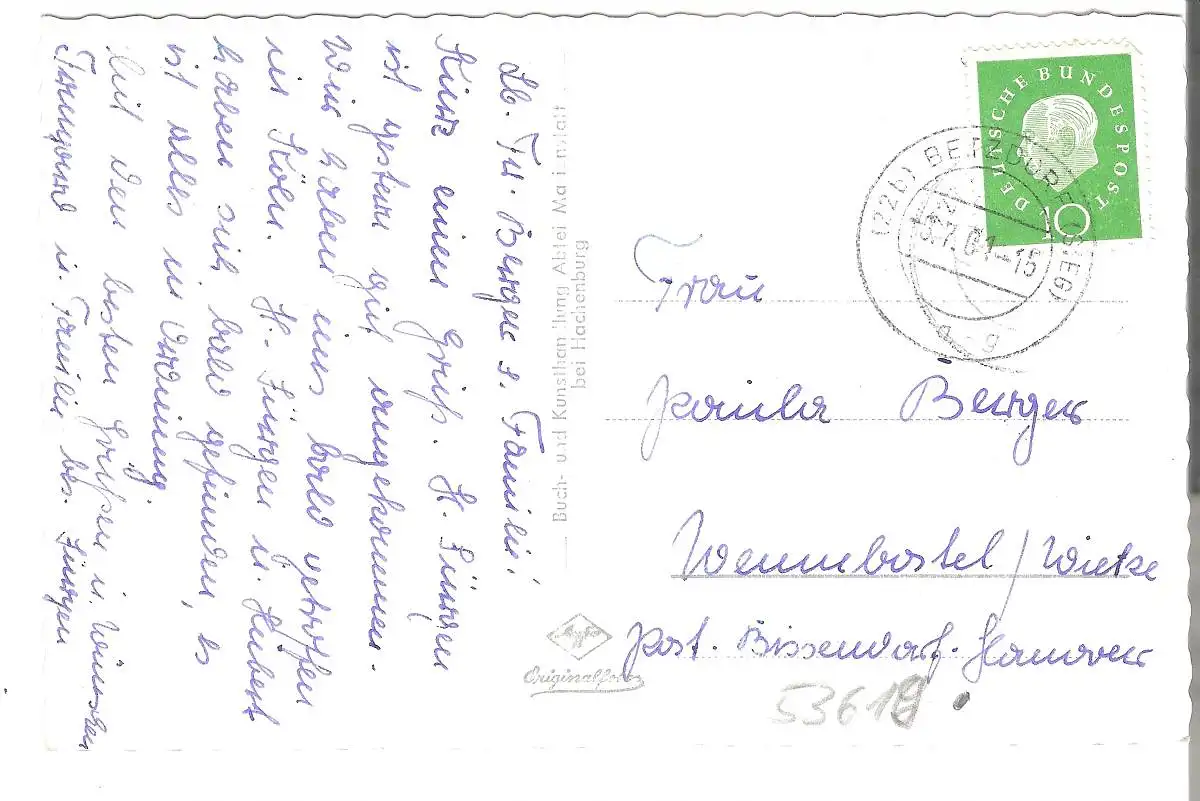 Lb. Fr. Berger u. Familie!
Kurz einen Gruß. H. Jürgen
ist gestern gut angekommen.
Wir haben uns bald getroffen
in Köln. H. Jürgen u. Hubert
haben sich bald gefunden, es
ist alles in Ordnung.
Mit den besten Grüßen u. Wünschen
u. Familie bes. Jürgen
Buch- und Kunsthandlung Abtei Marienstatt
bei Hachenburg
Originalfoto
DEUTSCHE BUNDESPOST
10
(22b) BETZDORF (SIEG)
7.61-15
Frau
Paula Berger
Wennebostel/Wietze
Post. Bissendorf-Hannover
53618